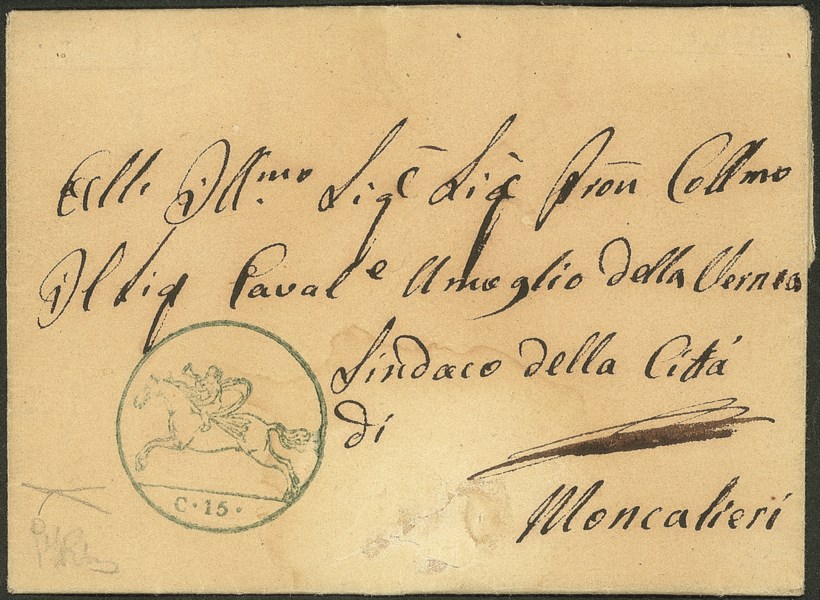 Ecll. Ill.mo Sigr Sigr Pron Collmo
Il Sig Caval e Ameglio della Vernea
Sindaco della Città
di
Moncalieri
C · 15 ·